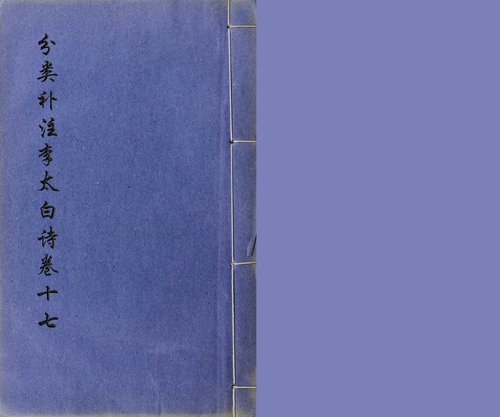 分类补注李太白诗卷十七